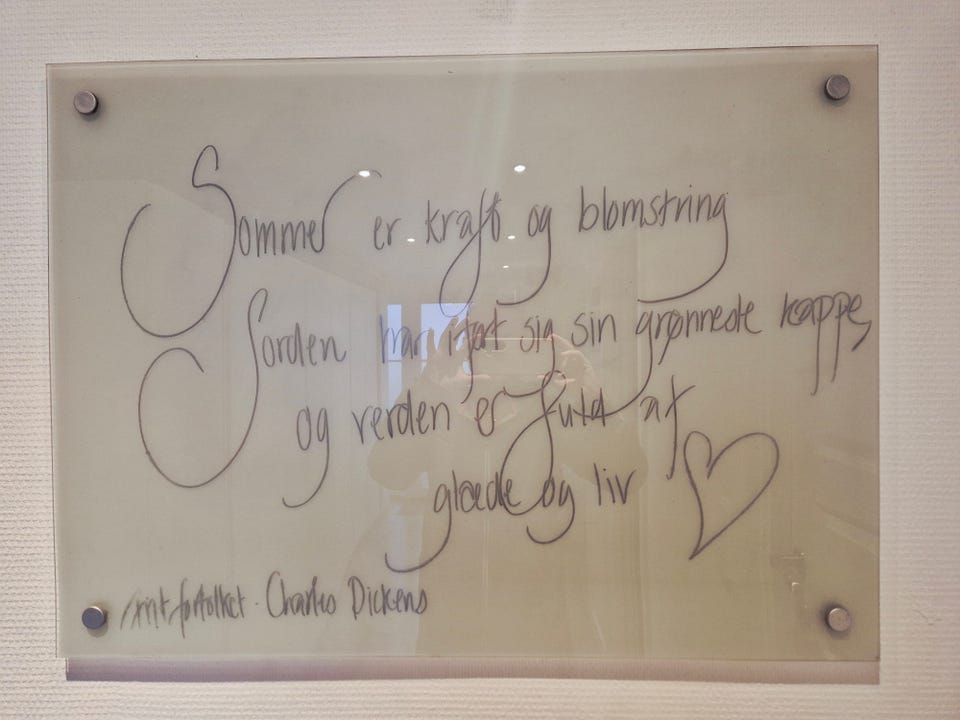 Sommer er kraft og blomstring
Jorden har iført sig sin grønneste kappe,
og verden er fuld af
glæde og liv
frit fortolket · Charles Dickens